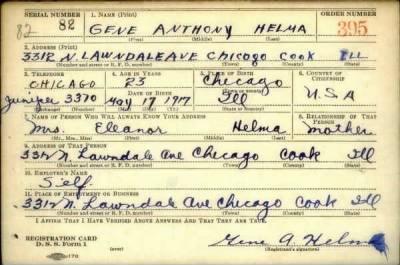 SERIAL NUMBER 1. NAME (Print) ORDER NUMBER
82 82 GENE ANTHONY HELMA 395
(First) (Middle) (Last)
2. ADDRESS (Print)
3312 N LAWNDALE AVE Chicago Cook ILL
(Number and street or R. F. D. number) (Town) (County) (State)
3. TELEPHONE 4. AGE IN YEARS 5. PLACE OF BIRTH 6. COUNTRY OF CITIZENSHIP
CHICAGO 23 Chicago
(Town or county)
Juniper 3370 DATE OF BIRTH Ill U.S.A
May 17 1917
(Exchange) (Number) (Mo.) (Day) (Yr.) (State or country)
7. NAME OF PERSON WHO WILL ALWAYS KNOW YOUR ADDRESS 8. RELATIONSHIP OF THAT PERSON
Mrs. Eleanor Helma Mother
(Mr., Mrs., Miss) (First) (Middle) (Last)
9. ADDRESS OF THAT PERSON
3312 N. Lawndale Ave Chicago Cook Ill
(Number and street or R. F. D. number) (Town) (County) (State)
10. EMPLOYER'S NAME
Self.
11. PLACE OF EMPLOYMENT OR BUSINESS
3312 N. Lawndale Ave Chicago Cook Ill
(Number and street or R. F. D. number) (Town) (County) (State)
I AFFIRM THAT I HAVE VERIFIED ABOVE ANSWERS AND THAT THEY ARE TRUE.
REGISTRATION CARD
D. S. S. Form 1 Gene A. Helma
(Registrant's signature)